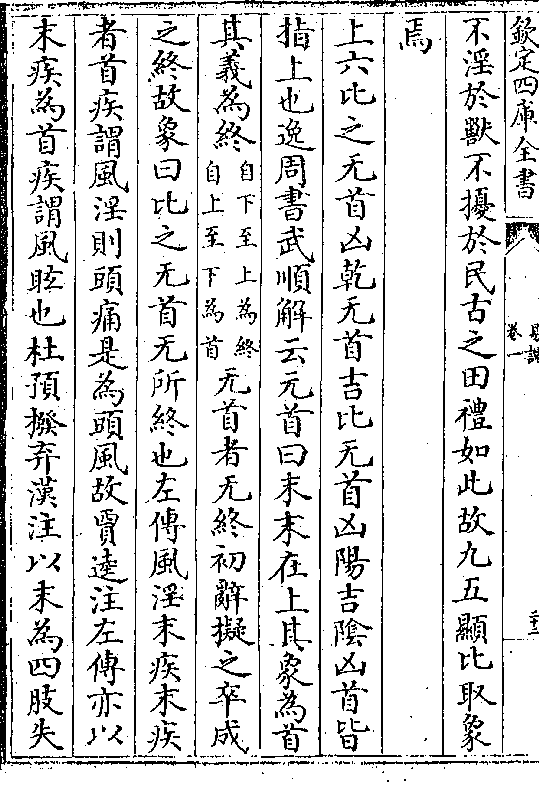 欽定四庫全書
易說
卷一
不淫於獸不擾於民古之田禮如此故九五顯比取象
焉
上六比之无首凶乾无首吉比无首凶陽吉陰凶首皆
指上也逸周書武順解云元首曰末末在上其象為首
其義為終自下至上為終自上至下為首无首者无終初辭擬之卒成
之終故象曰比之无首无所終也左傳風淫末疾末疾
者首疾謂風淫則頭痛是為頭風故賈逵注左傳亦以
末疾為首疾謂風眩也杜預撥弃漢注以末為四肢失